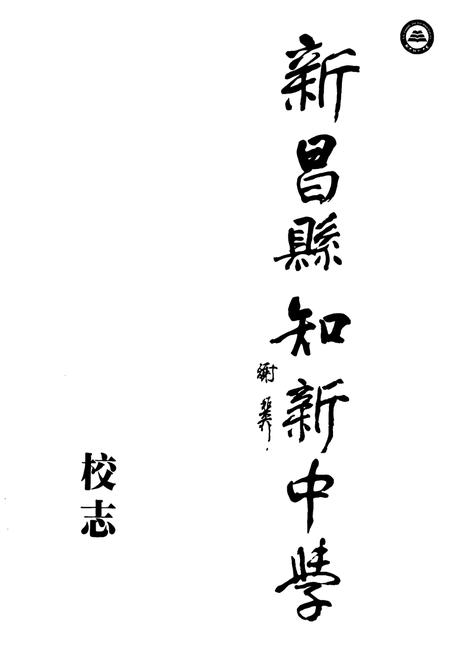 新昌縣知新中學
校志